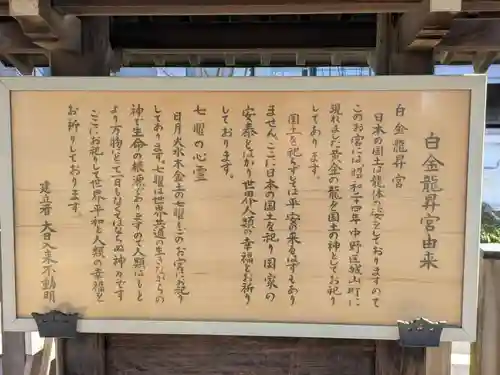 白金龍昇宮由来
白金龍昇宮
日本の国土は龍体の姿をしておりますので
このお宮には昭和二十四年中野区城山町に
現れました黄金の龍を国土の神としてお祀り
してあります。
国土を祀らずしては平安の来るはずもあり
ません、ここに日本の国土を祀り国家の
安泰とはかり世界人類の幸福とお祈り
しております。
七曜の心霊
日月火水木金土の七曜もこのお宮にお祀り
してあります。七曜は世界共通の生きながらの
神で生命の根源でありますので人類はもと
より万物にとって一日もなくてはならぬ神々です
ここにお祀りして世界平和と人類の幸福を
お祈りしております。
建立者 大日入来不動明